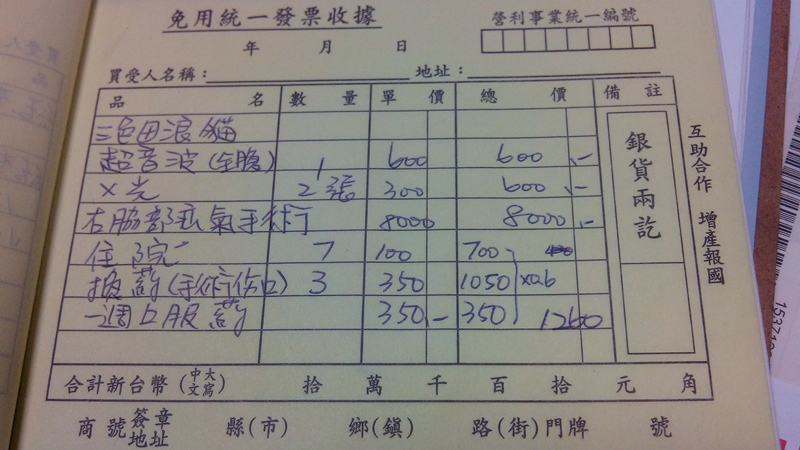 免用統一發票收據
營利事業統一編號
年 月 日
買受人名稱： 地址：
品 名 數 量 單 價 總 價 備 註
三色田浪貓
超音波(全腹) 1 600 600 .-
X光 2張 300 600 .-
右脇部疝氣手術 8000 8000 .-
住院 7 100 700
換葯(手術傷口) 3 350 1050 x0.6
一週口服葯 350.- 350 1260
銀貨兩訖
互助合作 增產報國
合計新台幣(中文大寫) 拾 萬 千 百 拾 元 角
商號簽章地址 縣(市) 鄉(鎮) 路(街)門牌 號